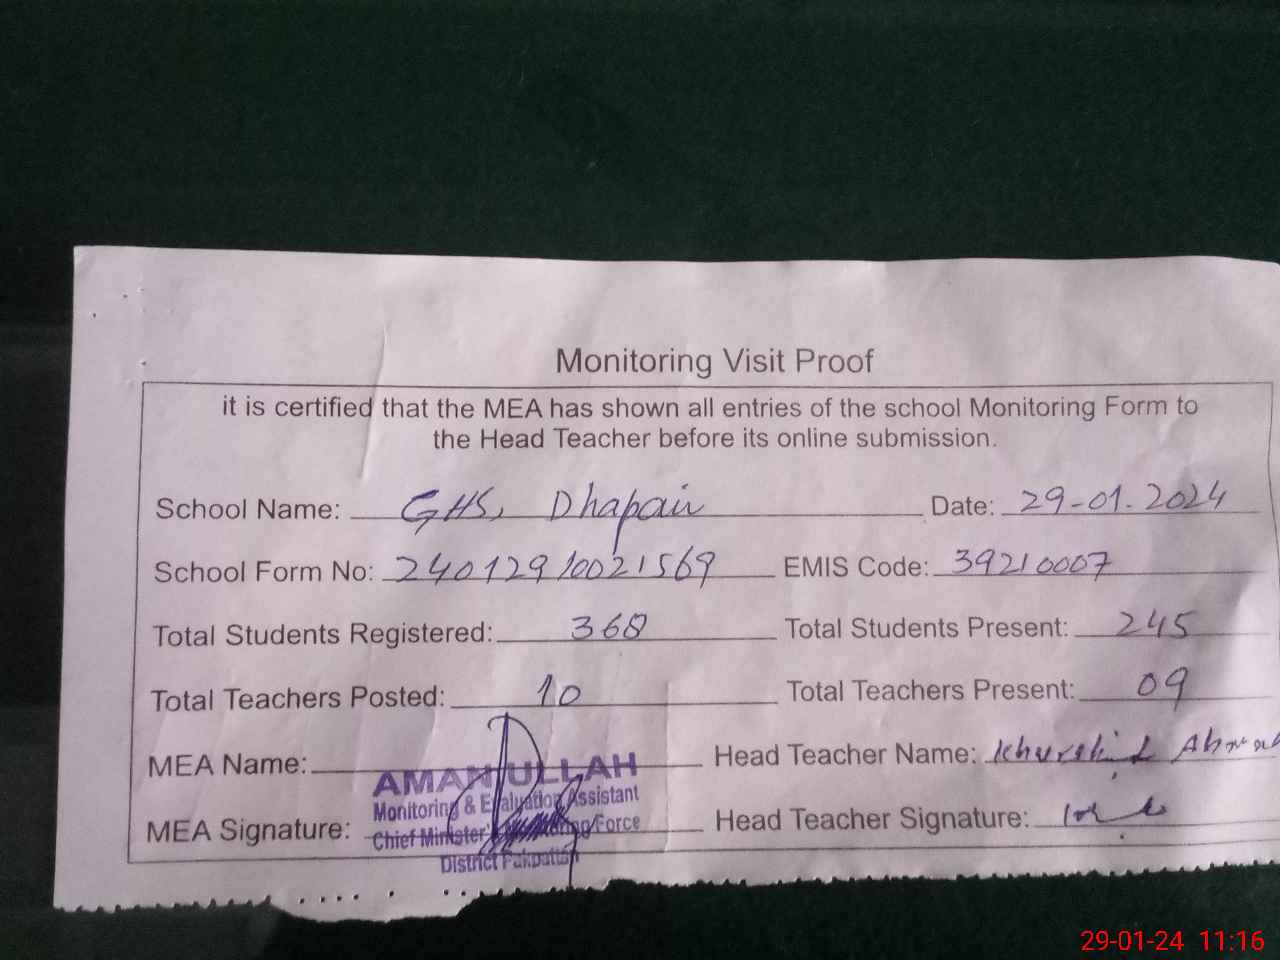 Monitoring Visit Proof
it is certified that the MEA has shown all entries of the school Monitoring Form to
the Head Teacher before its online submission.
School Name: GHS, Dhapai Date: 29-01.2024
School Form No: 24012910021569 EMIS Code: 39210007
Total Students Registered: 368 Total Students Present: 245
Total Teachers Posted: 10 Total Teachers Present: 09
MEA Name: Head Teacher Name: Khurshid Ahmad
AMAN ULLAH
Monitoring & Evaluation Assistant
MEA Signature: Head Teacher Signature:
Chief Minister's Monitoring Force
District Pakpattan
29-01-24 11:16